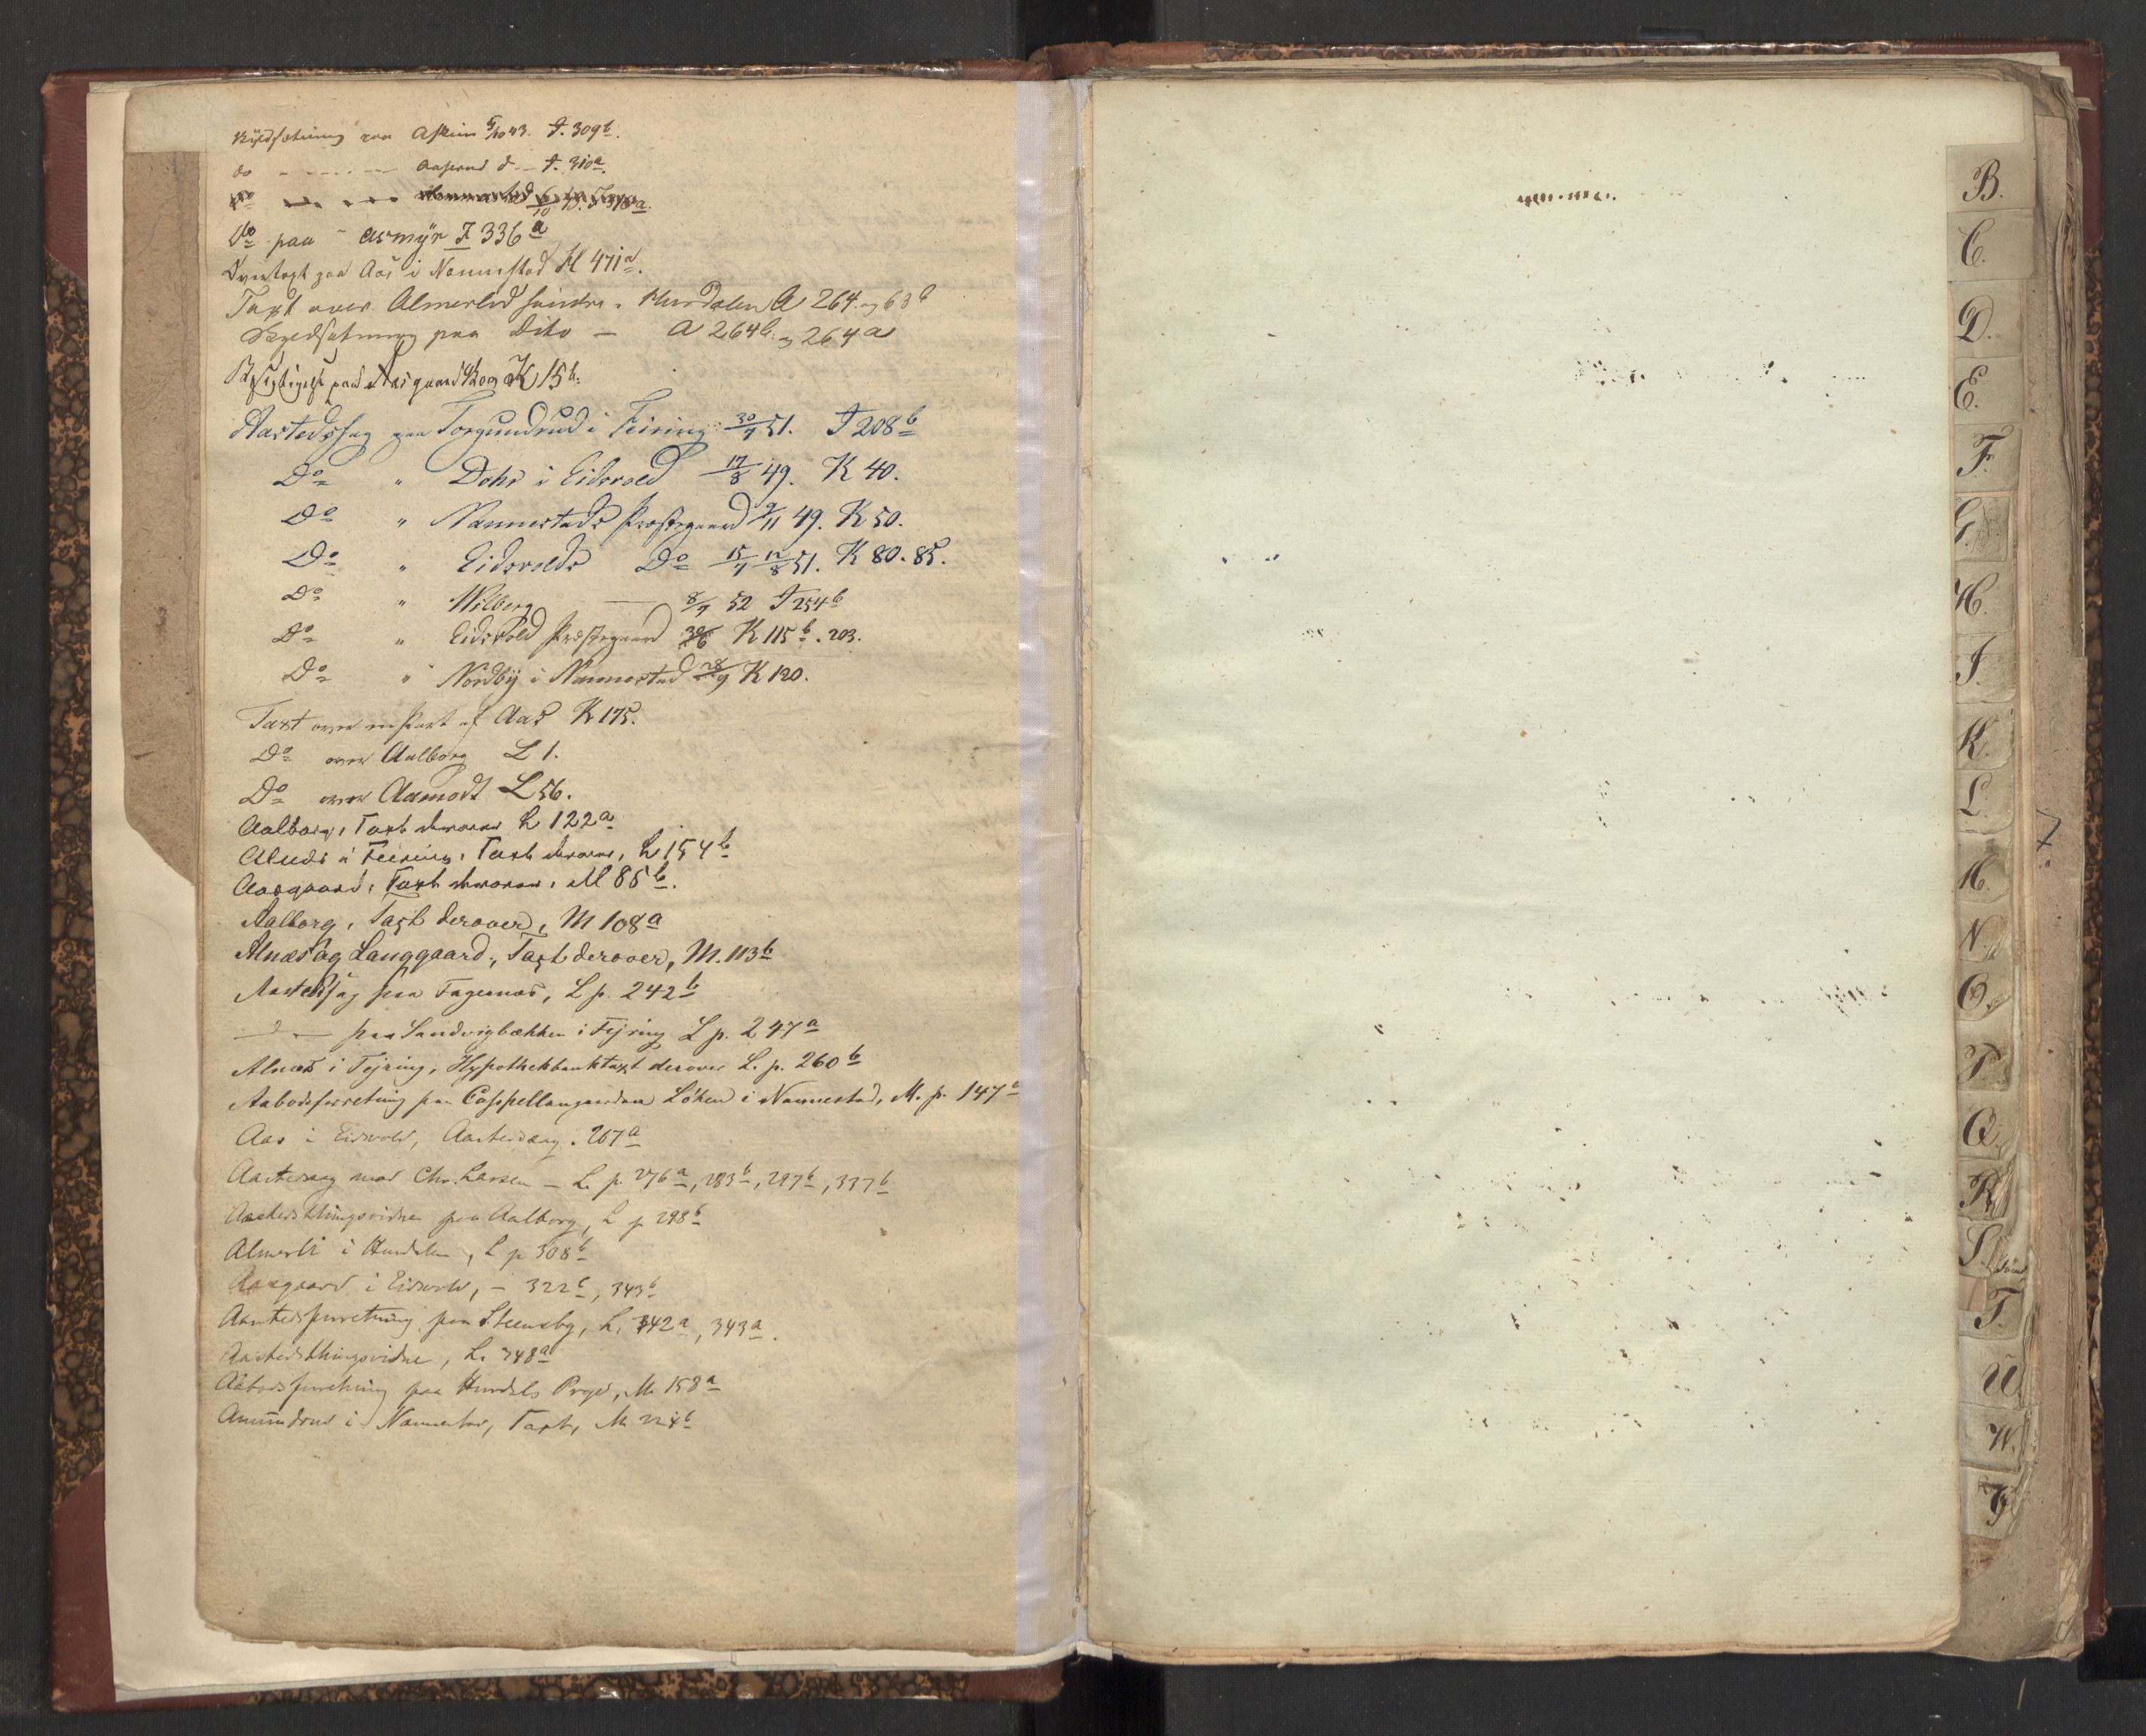 Skyldsætning paa Askim 5/10 43. I. 309b.
do - - - - Aaserud d - I. 310a.
Do
Do paa - Asmyr I 336a
Overtaxt paa Aas i Nannestad H 471a.
Taxt over Almerlid søndre i Hurdalen A 264 og 63b
Skyldsætning paa Dito - A 264b og 264a
Besigtigelse paa Aasgaard Skov K 15b.
Aastedssag paa Torgundrud i Feiring 30/7 51. I 208b
Do " Dohr i Eidsvold 17/8 49. K 40.
Do " Nannestads Præstegaard 9/11 49. K 50.
Do " Eidsvolds Do 15/7 12/8 51. K 80. 85.
Do " Wilberg — 8/7 52 I 254b
Do " Eidsvold Præstegaard K 115b. 203.
Do " Nordby i Nannestad 28/9 K 120.
Taxt over en Part af Aas K 175.
Do over Aalborg L 1.
Do over Aamodt L 56.
Aalborg, Taxt derover L 122a
Alnæs i Feiring, Taxt derover, L 154b
Aasgaard, Taxt derover, M 85b.
Aalborg, Taxt derover, M 108a
Alnæs og Langgaard, Taxt derover, M. 113b
Aastedssag paa Fagernæs, L p. 242b
— d — paa Sandvigbækken i Fejring L p. 247a
Alnæs i Fejring, Hypothekbanktaxt derover L. p. 260b
Aabodsforretning paa Cappellangaarden Løken i Nannestad, M. p. 147a
Aas i Eidsvold, Aastedssag. 267a
Aastedssag mod Chr. Larsen - L. p. 276a, 283b, 297b, 337b
Aastedsthingsvidne paa Aalborg, L p 298b
Almerli i Hurdalen, L p 308b
Aasgaard i Eidsvold, - 322b, 343b
Aastedsforretning paa Steensby, L. 342a, 343a.
Aastedsthingsvidne, L. 348a
Aabodsforretning paa Hurdals Prgd, M 158a
Amundrud i Nannestad, Taxt, M 224b
B.
C.
D.
E.
F.
G.
H.
I.
K.
L.
M.
N.
O.
P.
Q.
R.
S.
T.
U
W.